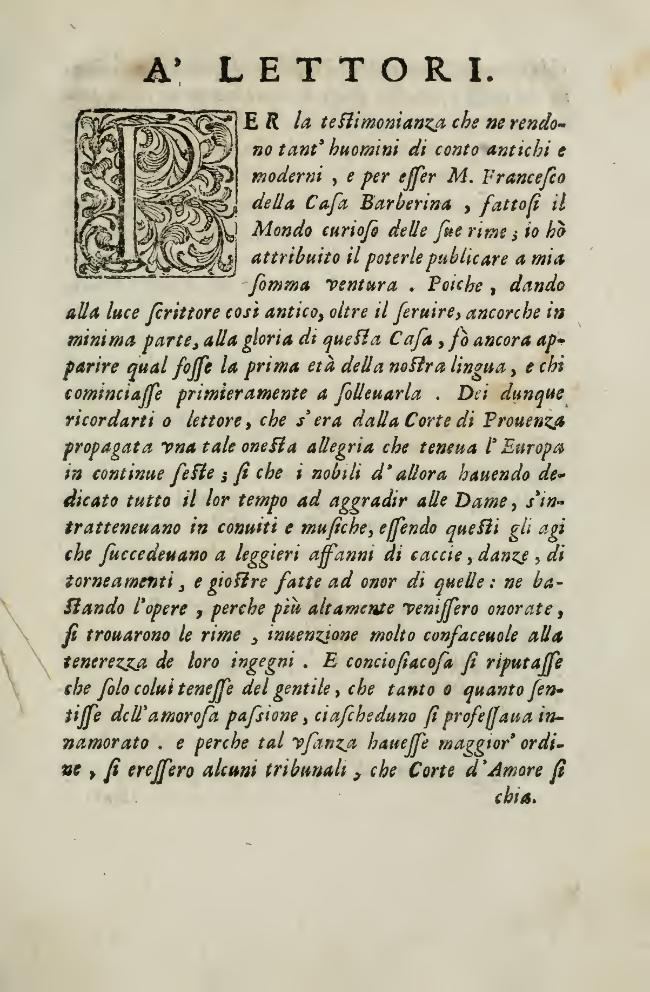 A' LETTORI.
PER la teſtimonianza che ne rendo-
no tant' huomini di conto antichi e
moderni , e per eſſer M. Franceſco
della Caſa Barberina , fattoſi il
Mondo curioſo delle ſue rime ; io hò
attribuito il poterle publicare a mia
ſomma ventura . Poiche , dando
alla luce ſcrittore così antico, oltre il ſeruire, ancorche in
minima parte, alla gloria di queſta Caſa , fò ancora ap-
parire qual foſſe la prima età della noſtra lingua , e chi
cominciaſſe primieramente a ſolleuarla . Dei dunque
ricordarti o lettore, che s'era dalla Corte di Prouenza
propagata vna tale oneſta allegria che teneua l'Europa
in continue feſte ; ſi che i nobili d'allora hauendo de-
dicato tutto il lor tempo ad aggradir alle Dame, s'in-
tratteneuano in conuiti e muſiche, eſſendo queſti gli agi
che ſuccedeuano a leggieri affanni di caccie , danze , di
torneamenti , e gioſtre fatte ad onor di quelle : ne ba-
ſtando l'opere , perche più altamente veniſſero onorate ,
ſi trouarono le rime , inuenzione molto confaceuole alla
tenerezza de loro ingegni . E concioſiacoſa ſi riputaſſe
che ſolo colui teneſſe del gentile, che tanto o quanto ſen-
tiſſe dell'amoroſa paſsione , ciaſcheduno ſi profeſſaua in-
namorato . e perche tal vſanza haueſſe maggior' ordi-
ne , ſi ereſſero alcuni tribunali , che Corte d'Amore ſi
chia.